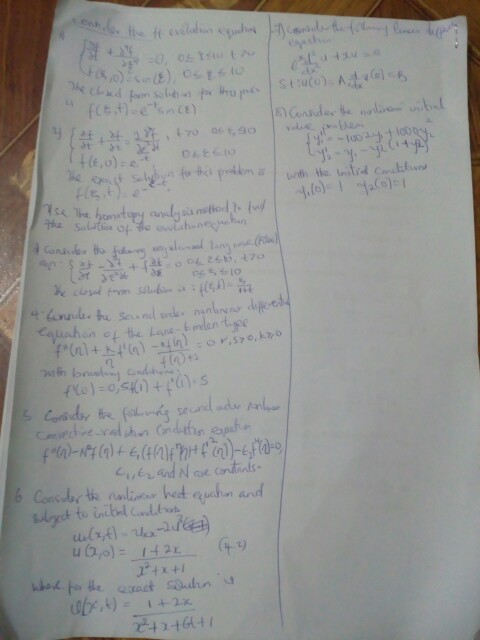 Consider the ff evolution equations
∂f/∂t + ∂²f/∂ξ² = 0, 0≤ξ≤10 t>0
f(ξ,0) = sin(ξ), 0≤ξ≤10
The closed form solution for this problem
is f(ξ,t) = e^-t sin(ξ)
2) t>0 0≤ξ≤10
f(ξ,0) = e^-ξ 0≤ξ≤10
The exact solution for this problem is
f(ξ,t) = e^-ξ-t
Use The homotopy analysis method to find
the solution of the evolution equation
Consider the following regularized long wave (RLW)
eqn: = 0 0≤ξ≤10, t>0
0≤ξ≤10
The closed form solution is: f(ξ,t) = ξ/1+t
4. Consider the second order nonlinear differential
equation of the Lane-Emden type
f''(η) + k/η f'(η) = 0
with boundary conditions:
f'(0) = 0, 5f(1) + f'(1) = 5
5 Consider the following second order nonlinear
convective-radiation conduction equation
f''(η) - N²f(η) + ε₁(f(η)f''(η) + f'²(η)) - ε₂f⁴(η) = 0,
ε₁, ε₂ and N are constants.
6 Consider the nonlinear heat equation and
subject to initial conditions
u(x,t) = uxx - 2u³
u(x,0) = 1+2x / x²+x+1
where for the exact solution is
u(x,t) = 1+2x / x²+x+6t+1
7) Consider the following linear
equation
u + xu = 0
s.t: u(0) = A d/dx u(0) = B
8) Consider the nonlinear initial
value problem
y₁' = -1002y₁ + 1000y₂²
y₂' = y₁ - y₂(1+y₂)
with the initial conditions
y₁(0) = 1 y₂(0) = 1